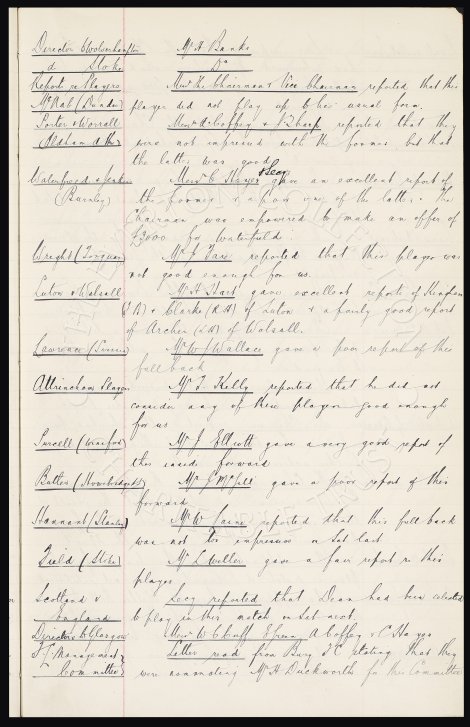 Director Wolverhampton Mr H. Banks
d. Stoke Do
Report re Players Messrs the Chairman & Vice Chairman reported that this
McNab (Dundee) player did not play up to his usual form.
Porter & Worrall Messrs A. Coffey & J. Sharp reported that they
(Oldham Ath) were not impressed with the former but that
the latter was good.
Waterfield & (Burnley) Messrs C. Hayes & Secy gave an excellent report of
the former & a poor one of the latter. The
Chairman was empowered to make an offer of
£3000 for Waterfield.
Wright (Torquay) Mr J. reported that this player was
not good enough for us.
Luton & Walsall Mr H. Hart gave excellent reports of
& Clarke of Luton & a fairly good report
of Archer of Walsall.
Lawrence Mr W. J. Wallace gave a poor report of this
full back
Altrincham Players Mr T. Kelly reported that he did not
consider any of these players good enough
for us
Purcell (Winsford) Mr J. Ellcott gave a very good report of
this inside forward
Butler Mr J. gave a poor report of this
forward
Hannant (Stanley) Mr W. reported that this full back
was not too impressive on Sat last
Field (Stoke) Mr L. Weller gave a fair report re this
player
Scotland v Secy reported that Dean had been selected
England to play in this match on Sat next.
Directors to Glasgow Messrs W. C. Cuff, A. Coffey & C. Hayes
F.L. Management Letter read from Bury F.C. stating that they
Committee were nominating Mr H. Duckworth for this Committee